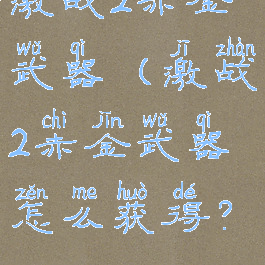 激战2赤金
wǔ qì
武器(激战
jī zhàn
2赤金武器
chì jīn wǔ qì
怎么获得?
zěn me huò dé